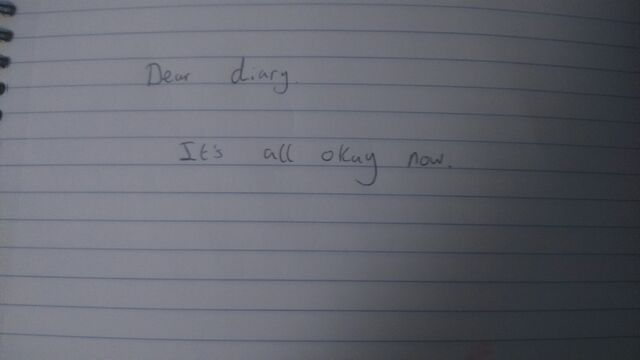 Dear diary.
It's all okay now.